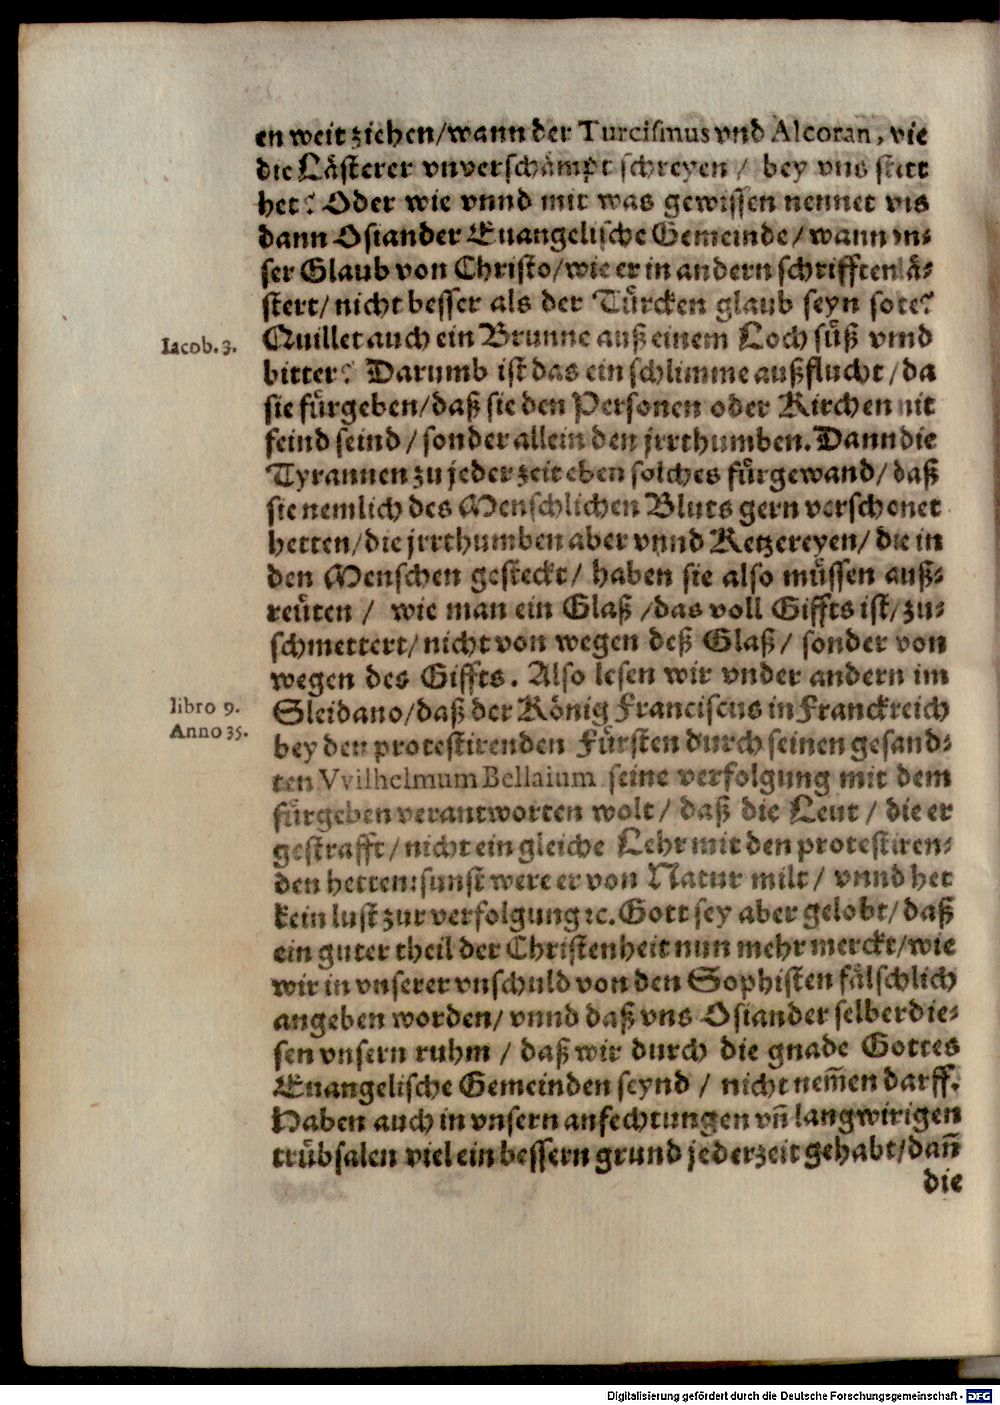 en weit ziehen/wann der Turcismus vnd Alcoran, wie
die Lästerer vnverschämpt schreyen / bey vns statt
het? Oder wie vnnd mit was gewissen nennet vns
dann Osiander Euangelische Gemeinde/wann vn-
ser Glaub von Christo/wie er in andern schrifften lä-
stert/nicht besser als der Türcken glaub seyn solte?
Iacob. 3.
Quillet auch ein Brunne auß einem Loch süß vnnd
bitter? Darumb ist das ein schlimme außflucht/da
sie fürgeben/daß sie den Personen oder Kirchen nit
feind seind/sonder allein den jrrthumben. Dann die
Tyrannen zu jeder zeit eben solches fürgewand/daß
sie nemlich des Menschlichen Bluts gern verschonet
hetten/die jrrthumben aber vnnd Ketzereyen/die in
den Menschen gesteckt/ haben sie also müssen auß-
reüten / wie man ein Glaß /das voll Giffts ist/zu-
schmettert/nicht von wegen deß Glaß/ sonder von
wegen des Giffts. Also lesen wir vnder andern im
libro 9.
Anno 35.
Sleidano/daß der König Franciscus in Franckreich
bey den protestirenden Fürsten durch seinen gesand-
ten VVilhelmum Bellaium seine verfolgung mit dem
fürgeben verantworten wolt/ daß die Leut / die er
gestrafft/nicht ein gleiche Lehr mit den protestiren-
den hetten: sunst were er von Natur milt/ vnnd het
kein lust zur verfolgung ꝛc. Gott sey aber gelobt/daß
ein guter theil der Christenheit nun mehr merckt/wie
wir in vnserer vnschuld von den Sophisten fälschlich
angeben worden/ vnnd daß vns Osiander selber die-
sen vnsern ruhm / daß wir durch die gnade Gottes
Euangelische Gemeinden seynd / nicht nem̃en darff.
Haben auch in vnsern anfechtungen vñ langwirigen
trübsalen viel ein bessern grund jederzeit gehabt/dañ
die
Digitalisierung gefördert durch die Deutsche Forschungsgemeinschaft - DFG